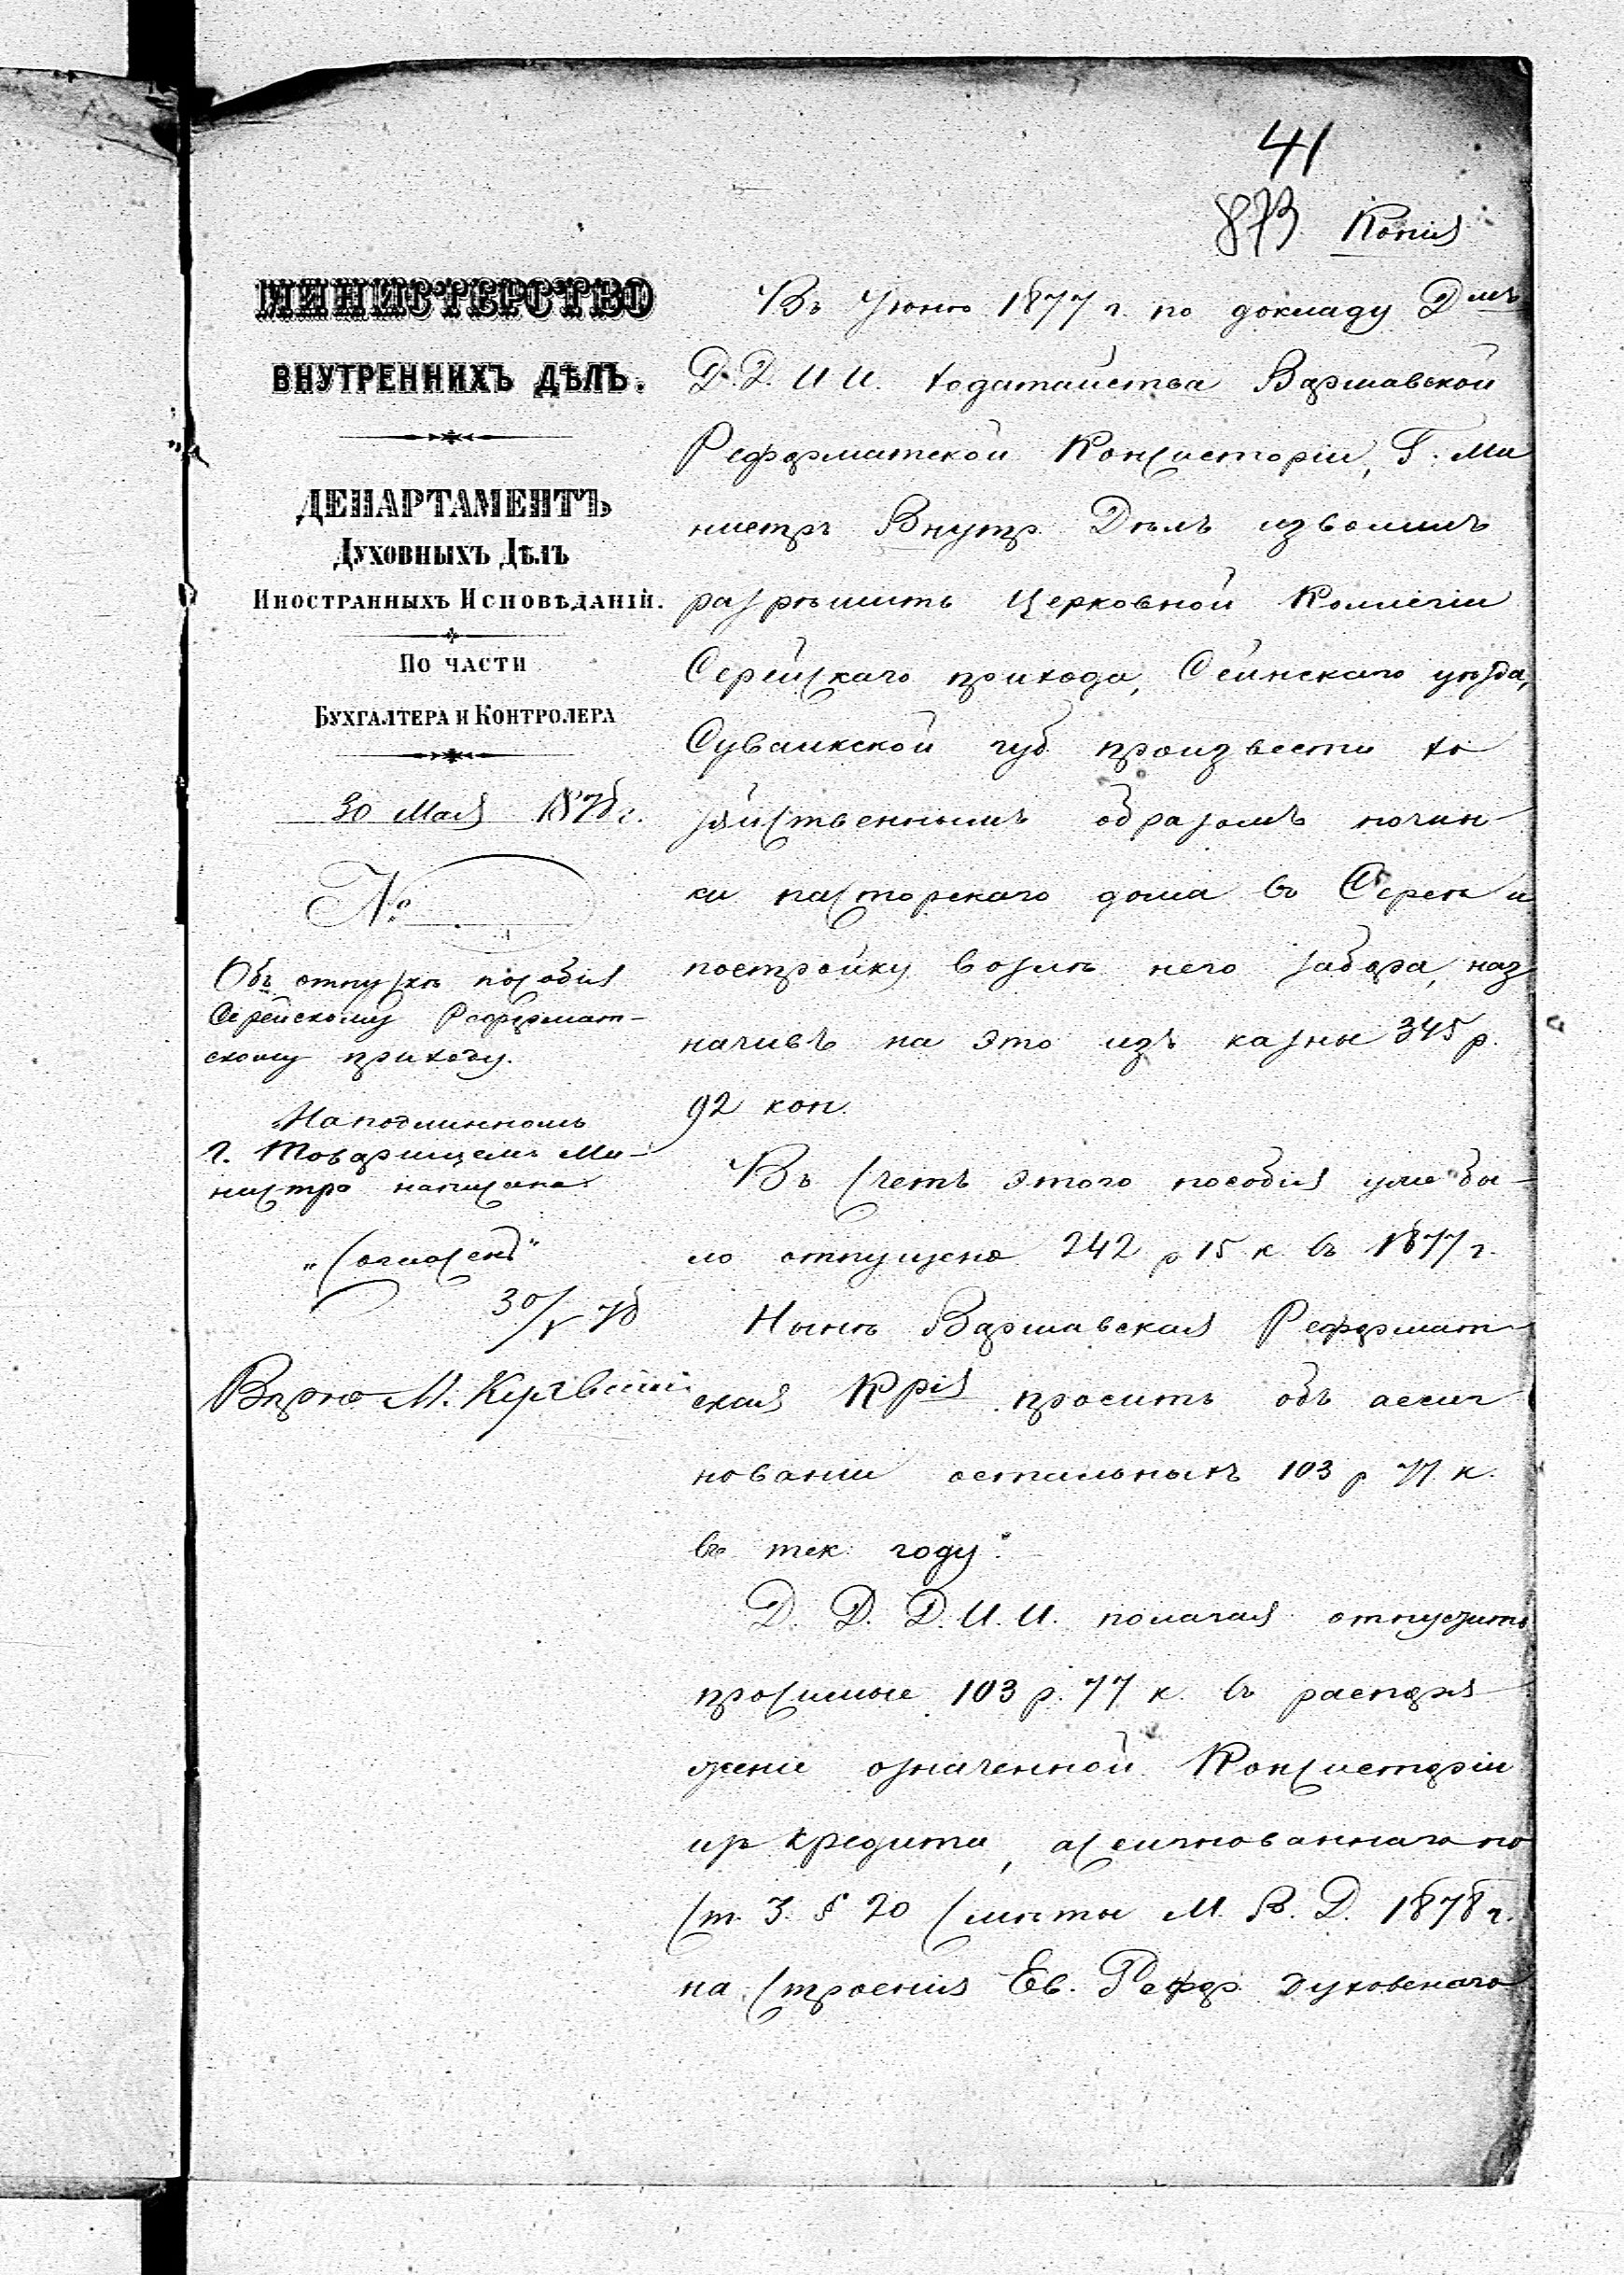 41
873 Копія
МИНИСТЕРСТВО
ВНУТРЕННИХЪ ДѢЛЪ.
ДЕПАРТАМЕНТЪ
ДУХОВНЫХЪ ДѢЛЪ
ИНОСТРАННЫХЪ ИСПОВѢДАНІЙ.
ПО ЧАСТИ
БУХГАЛТЕРА И КОНТРОЛЕРА
30 Мая 1878 г.
№
Объ отпускѣ пособія
Серейскому Реформат-
скому приходу.
На подлинномъ
г. Товарищемъ Ми-
нистра написано
„Согласенъ"
30/V 78
Вѣрно М.
Въ Іюнѣ 1877 г. по докладу Дмъ
Д. Д. И И. ходатайства Варшавской
Реформатской Консисторіи, Г. Ми
нистръ Внутр. Дѣлъ изволилъ
разрѣшить Церковной Коллегіи
Серейскаго прихода, Сейнскаго уѣзда,
Сувалкской губ. произвести хо
зяйственнымъ образомъ почин-
ки пасторскаго дома въ Сереѣ и
постройку возлѣ него забора, наз
начивъ на это изъ казны 345 р.
92 коп.
Въ счетъ этого пособія уже бы-
ло отпущено 242 р 15 к. въ 1877 г.
Нынѣ Варшавская Реформат-
ская Крія проситъ объ ассиг
нованіи остальныхъ 103 р 77 к.
въ тек. году.
Д. Д. Д. И. И. полагая отпустить
просимые 103 р. 77 к. въ распоря
женіе означенной Консисторіи
изъ кредита, ассигнованнаго по
ст. 3. § 20 смѣты М. В. Д. 1878 г.
на строенія Ев. Реформ. духовенаго